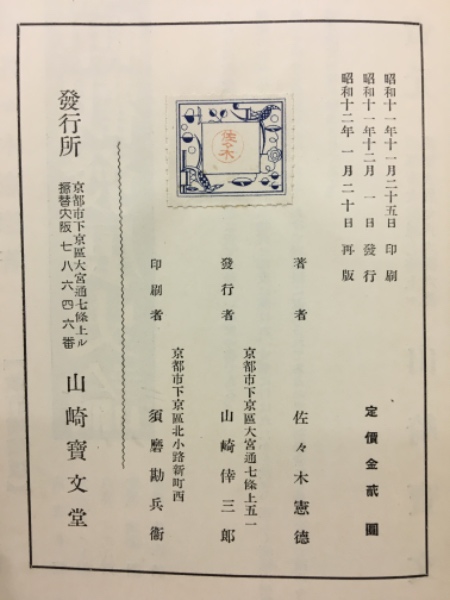 昭和十一年十一月二十五日 印刷
昭和十一年十二月 一日 發行
昭和十二年 一月二十日 再版
定價金貳圓
佐々木
著者 佐々木憲德
京都市下京區大宮通七條上五一
發行者 山崎倖三郎
京都市下京區北小路新町西
印刷者 須磨勘兵衞
發行所 京都市下京區大宮通七條上ル 山崎寶文堂
振替大阪七八六四六番